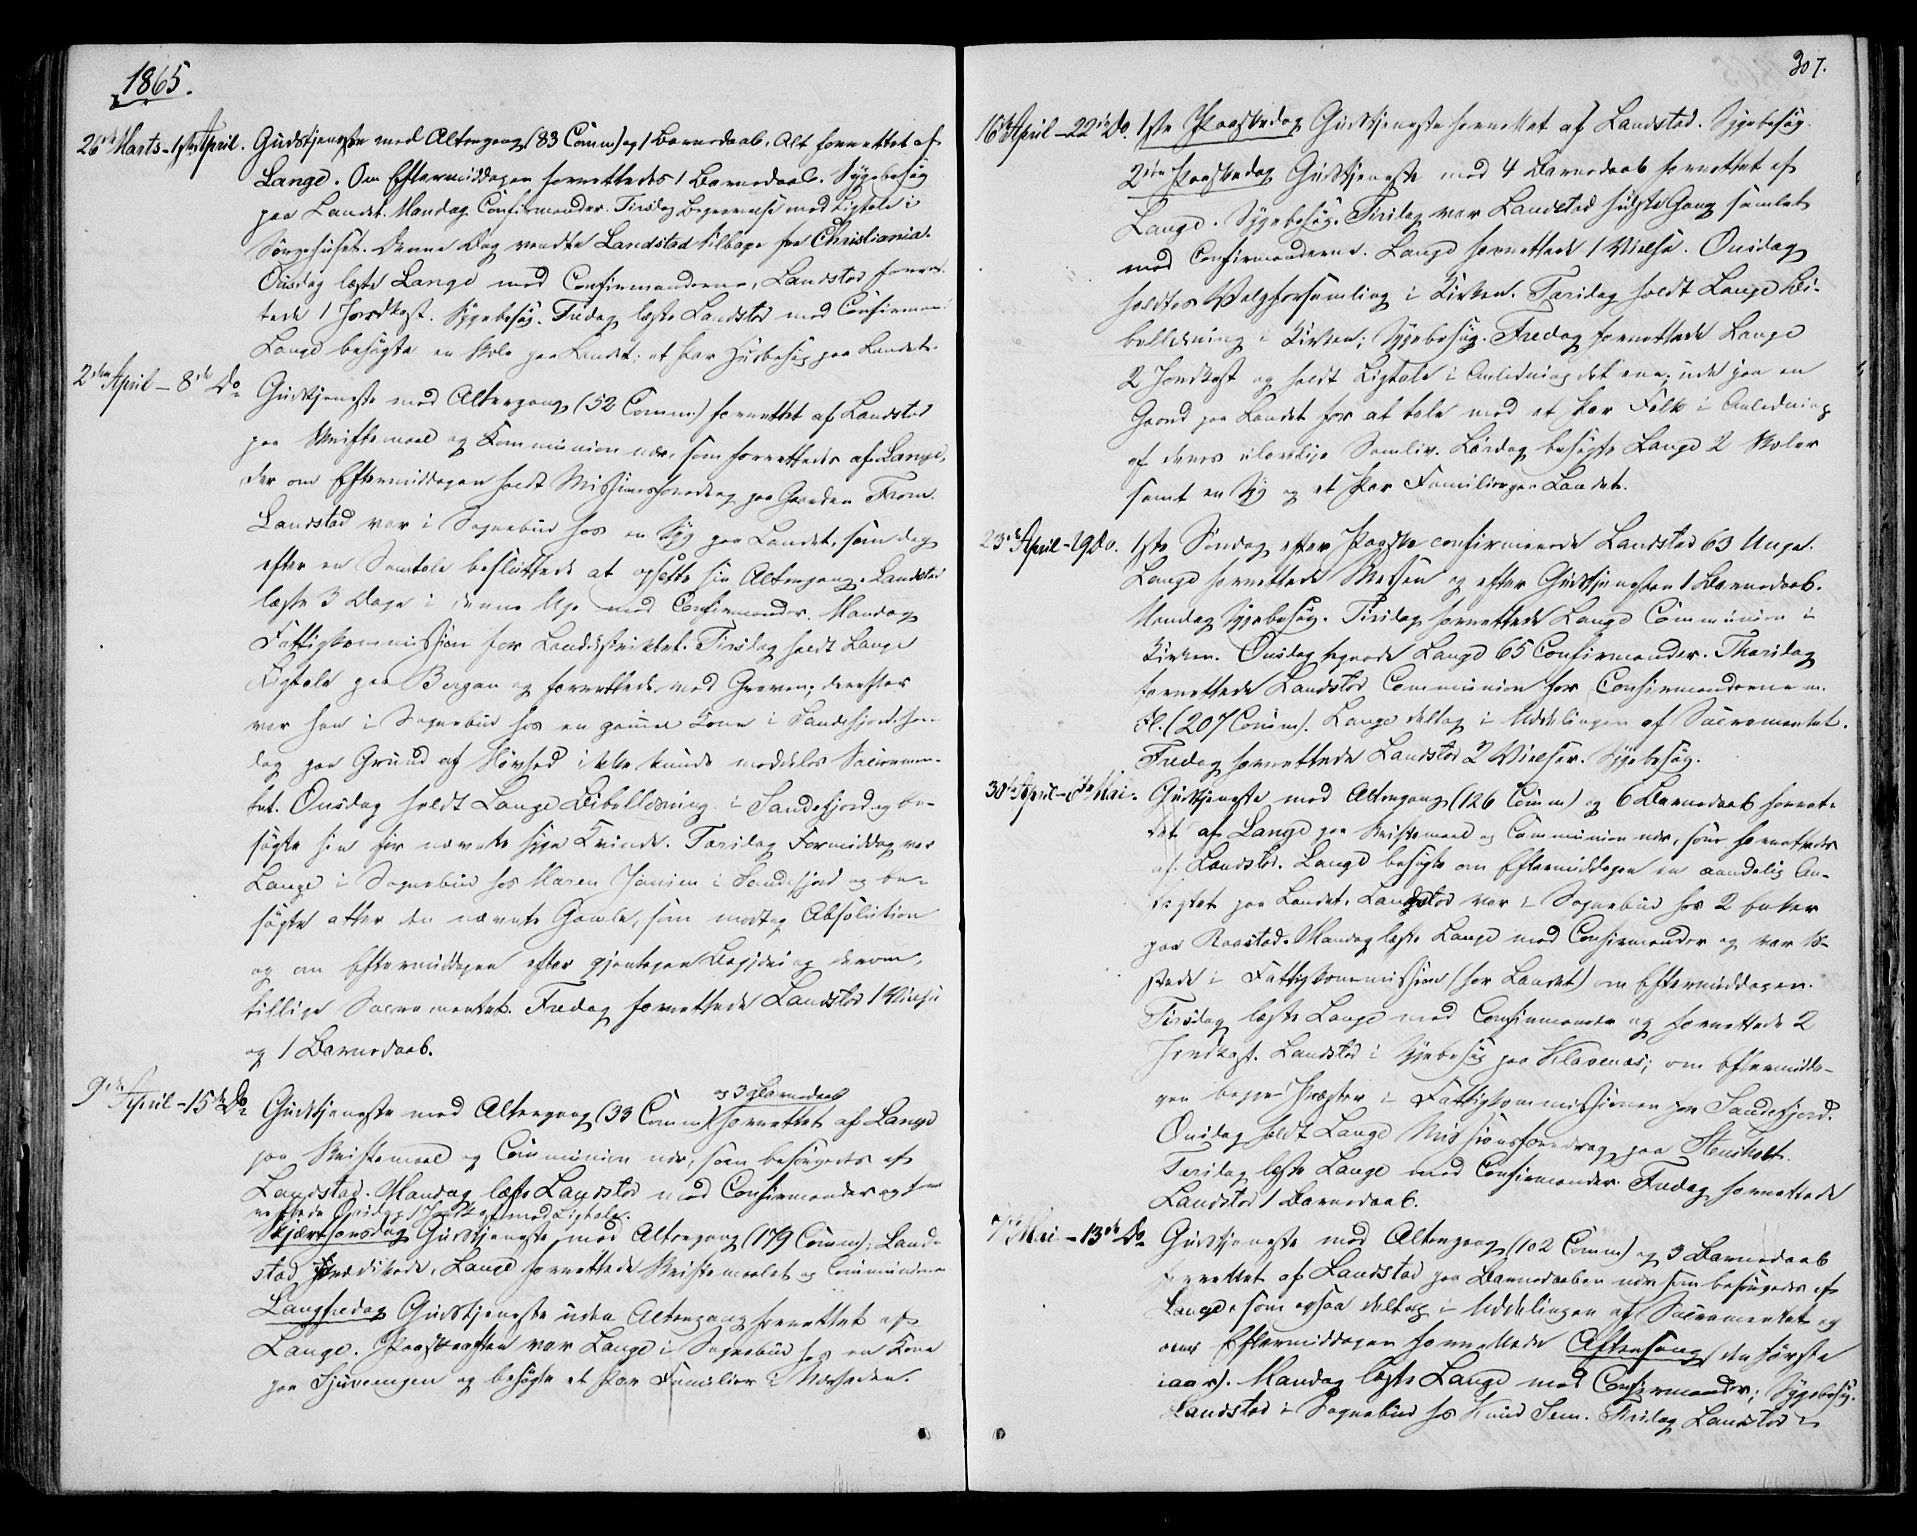 1865.
26de Marts - 1ste April. Gudstjeneste med Altergang (83 Comm) og 1 Barnedaab. Alt forrettet af
Lange. Om Eftermiddagen forrettedes 1 Barnedaab. Sygebesøg
paa Landet. Mandag Confirmander. Tirsdag Begravelse med Ligtale i
Sørgehuset. Denne Dag vendte Landstad tilbage fra Christiania.
Onsdag læste Lange med Confirmanderne, Landstad forret-
tede 1 Jordkast. Sygebesøg. Fredag læste Landstad med Confirman
Lange besøgte en Skole paa Landet; et Par Husbesøg paa Landet.
2den April - 8de Do Gudstjeneste med Altergang (52 Comm) forrettet af Landstad
paa Skriftemaal og Kommunion nær, som forrettedes af Lange,
der om Eftermiddagen holdt Missionsforedrag paa Gaarden Fram.
Landstad var i Sognebud hos en Syg paa Landet, som dog
efter en Samtale besluttede at opsætte sin Altergang. Landstad
læste 3 Dage i denne Uge med Confirmander. Mandag
Fattigkommission for Landdistriktet. Tirsdag holdt Lange
Ligtale paa Bergan og forrettede ved Graven; derefter
var han i Sognebud hos en gammel Kone i Sandefjord, hvem
dog paa Grund af Sløvhed ikke kunde meddeles Sacramen-
tet. Onsdag holdt Lange Bibellæsning i Sandefjord og be-
søgte hin før nævnte syge Kvinde. Torsdag Formiddag var
Lange i Sognebud hos Maren Jansen i Sandefjord og be-
søgte atter den nævnte Gamle, som modtog Absolution
og om Eftermiddagen efter gjentagen Begjæring derom,
tillige Sacramentet. Fredag forrettede Landstad 1 Vielse
og 1 Barnedaab.
9de April - 15de Do Gudstjeneste med Altergang (33 Comm) og 3 Barnedaab forrettet af Lange
paa Skriftemaal og Communion nær, som besørgedes af
Landstad. Mandag læste Landstad med Confirmander og for-
rettede Onsdag 1 Jordkast med Ligtale.
Skjærthorsdag Gudstjeneste med Altergang (179 Comm); Land-
stad prædikede, Lange forrettede Skriftemaalet og Communionen
Langfredag Gudstjeneste uden Altergang forrettet af
Lange. Paaskeaften var Lange i Sognebud hos en Kone
paa Fjuvengen og besøgte et Par Familier i Nærheden.
307.
16de April - 22de Do. 1ste Paaskedag Gudstjeneste forrettet af Landstad. Sygebesøg.
2den Paaskedag Gudstjeneste med 4 Barnedaab forrettet af
Lange. Sygebesøg. Tirsdag var Landstad sidste Gang samlet
med Confirmanderne. Lange forrettede 1 Vielse. Onsdag
holdtes Valgforsamling i Kirken. Torsdag holdt Lange Bi-
bellæsning i Kirken; Sygebesøg. Fredag forrettede Lange
2 Jordkast og holdt Ligtale i Anledning det ene; ude paa en
Gaard paa Landet for at tale med et Par Folk i Anledning
af deres ulovlige Samliv. Lørdag besøgte Lange 2 Skoler
samt en Syg og et Par Familier paa Landet.
23de April - 29 Do. 1ste Søndag efter Paaske confirmerede Landstad 63 Unge.
Lange forrettede Messen og efter Gudstjenesten 1 Barnedaab.
Mandag Sygebesøg. Tirsdag forrettede Lange Communion i
Kirken. Onsdag tegnede Lange 65 Confirmander. Thorsdag
forrettede Landstad Communion for Confirmanderne m.
Fl. (207 Comm). Lange deltog i Uddelingen af Sacramentet.
Fredag forrettede Landstad 2 Vielser. Sygebesøg.
30de April - 6te Mai. Gudstjeneste med Altergang (126 Comm) og 6 Barnedaab forret-
tet af Lange paa Skriftemaal og Communion nær, som forrettedes
af Landstad. Lange besøgte om Eftermiddagen en aandelig An-
fegtet paa Landet. Landstad var i Sognebud hos 2 Syke
paa Raastad. Mandag læste Lange med Confirmander og var til-
stede i Fattigkommission (for Landet) om Eftermiddagen.
Tirsdag læste Lange med Confirmander og forrettede 2
Jordkast. Landstad i Sygebesøg paa Klavenæs; om Eftermidda-
gen begge Præster i Fattigkommissionen for Sandefjord.
Onsdag holdt Lange Missionsforedrag paa Stensholt.
Torsdag læste Lange med Confirmander. Fredag forrettede
Landstad 1 Barnedaab.
7de Mai - 13de Do Gudstjeneste med Altergang (102 Comm) og 3 Barnedaab
forrettet af Landstad paa Barnedaaben nær som besørgedes af
Lange, som ogsaa deltog i Uddelingen af Sacramentet og
om Eftermiddagen forrettede Aftensang (den første
iaar). Mandag læste Lange med Confirmander; Sygebesøg.
Landstad i Sognebud hos Knud Sem. Tirsdag Landstad i